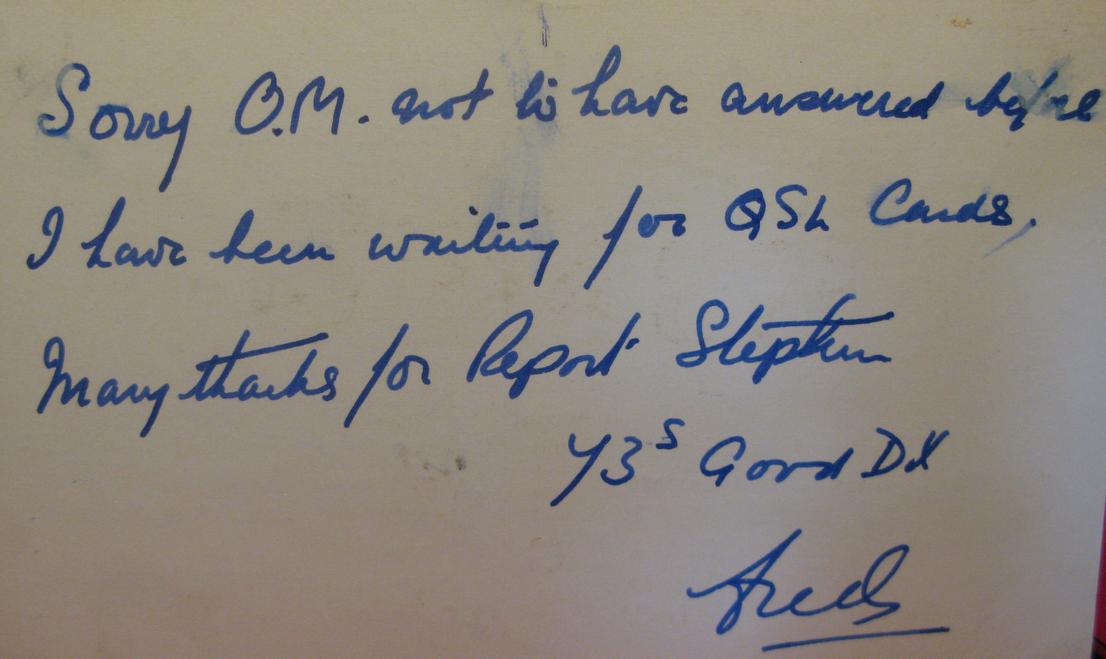 Sorry O.M. not to have answered before
I have been waiting for QSL Cards,
Many thanks for Report Stephen
73s Good DX
Fred